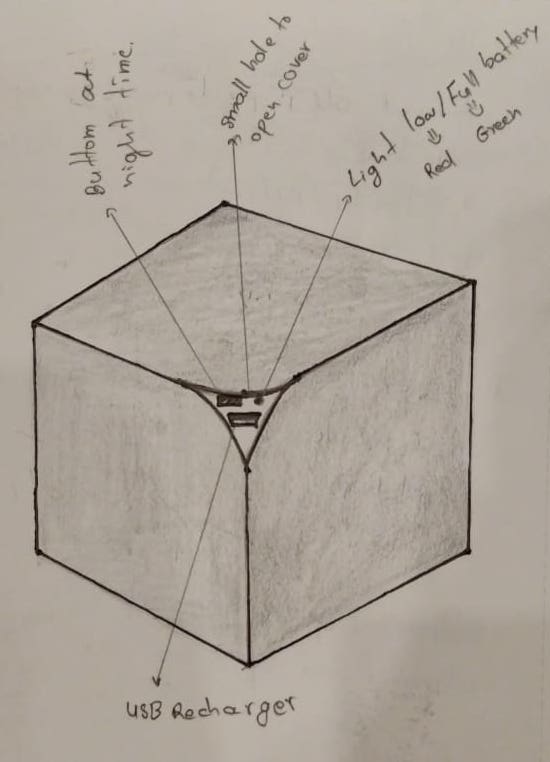 Buttom at
night time.
Small hole to
open cover
Light low/Full battery
⇓ ⇓
Red Green
USB Recharger